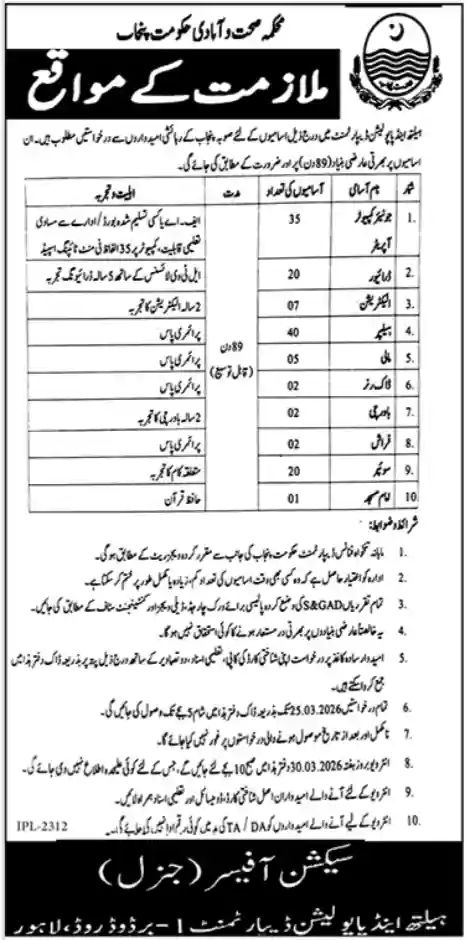 محکمہ صحت و آبادی حکومت پنجاب
ملازمت کے مواقع
ہیلتھ اینڈ پاپولیشن ڈیپارٹمنٹ میں درج ذیل اسامیوں کے لئے صوبہ پنجاب کے رہائشی امیدواروں سے درخواستیں مطلوب ہیں۔ ان
اسامیوں پر بھرتی عارضی بنیاد (89 دن) پر اور ضرورت کے مطابق کی جائے گی۔
شمار نام آسامی آسامیوں کی تعداد مدت اہلیت و تجربہ
1. جونیئر کمپیوٹر آپریٹر 35 ایف۔ اے یا کسی تسلیم شدہ بورڈ/ ادارے سے مساوی تعلیمی قابلیت، کمپیوٹر پر 35 الفاظ فی منٹ ٹائپنگ اسپیڈ
2. ڈرائیور 20 ایل ٹی وی لائسنس کے ساتھ 5 سالہ ڈرائیونگ تجربہ
3. الیکٹریشن 07 2 سالہ الیکٹریشن کا تجربہ
4. ہیلپر 40 پرائمری پاس
89 دن (قابل توسیع)
5. مالی 05 پرائمری پاس
6. ڈاک رنر 02 پرائمری پاس
7. باورچی 02 2 سالہ باورچی کا تجربہ
8. فراش 02 پرائمری پاس
9. سوئپر 20 متعلقہ کام کا تجربہ
10. امام مسجد 01 حافظ قرآن
شرائط و ضوابط:
1. ماہانہ تنخواہ فنانس ڈیپارٹمنٹ حکومت پنجاب کی جانب سے مقرر کردہ ویجز ریٹ کے مطابق ہو گی۔
2. ادارہ کو اختیار حاصل ہے کہ وہ کسی بھی وقت اسامیوں کی تعداد کم، زیادہ یا مکمل طور پر ختم کر سکتا ہے۔
3. تمام تقرریاں S&GAD کی وضع کردہ پالیسی برائے ورک چارجڈ، ڈیلی ویجز اور کنٹیجینٹ سٹاف کے مطابق کی جائیں۔
4. یہ خالصتاً عارضی بنیادوں پر بھرتی در مستعار ہونے کا کوئی استحقاق نہیں ہو گا۔
5. امیدوار سادہ کاغذ پر درخواست اپنی شناختی کارڈ کی کاپی، تعلیمی اسناد، دو تصاویر کے ساتھ درج ذیل پتہ پر بذریعہ ڈاک دفتر ہذا میں
جمع کروا سکتے ہیں۔
6. تمام درخواستیں 25.03.2026 تک بذریعہ ڈاک دفتر ہذا میں شام 5 بجے تک وصول کی جائیں گی۔
7. نامکمل اور بعد از تاریخ موصول ہونے والی درخواستوں پر غور نہیں کیا جائے گا۔
8. انٹرویو بروز ہفتہ 30.03.2026 دفتر ہذا میں صبح 10 بجے لئے جائیں گے، جس کے لئے کوئی علیحدہ اطلاع نہیں دی جائے گی۔
9. انٹرویو کے لئے آنے والے امیدواران اصل شناختی کارڈ، ڈومیسائل اور تعلیمی اسناد ہمراہ لائیں۔
10. انٹرویو کے لیے آنے والے امیدواروں کو TA/DA کی مد میں کوئی رقم ادا نہیں کی جائے گی۔
IPL-2312
سیکشن آفیسر (جنرل)
ہیلتھ اینڈ پاپولیشن ڈیپارٹمنٹ 1- برڈوڈ روڈ، لاہور